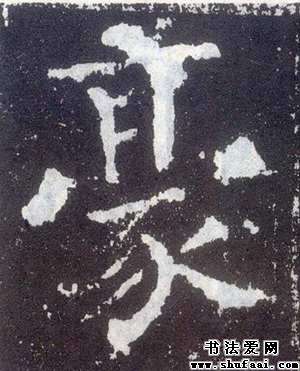 豪
书法爱网
www.shufaai.com